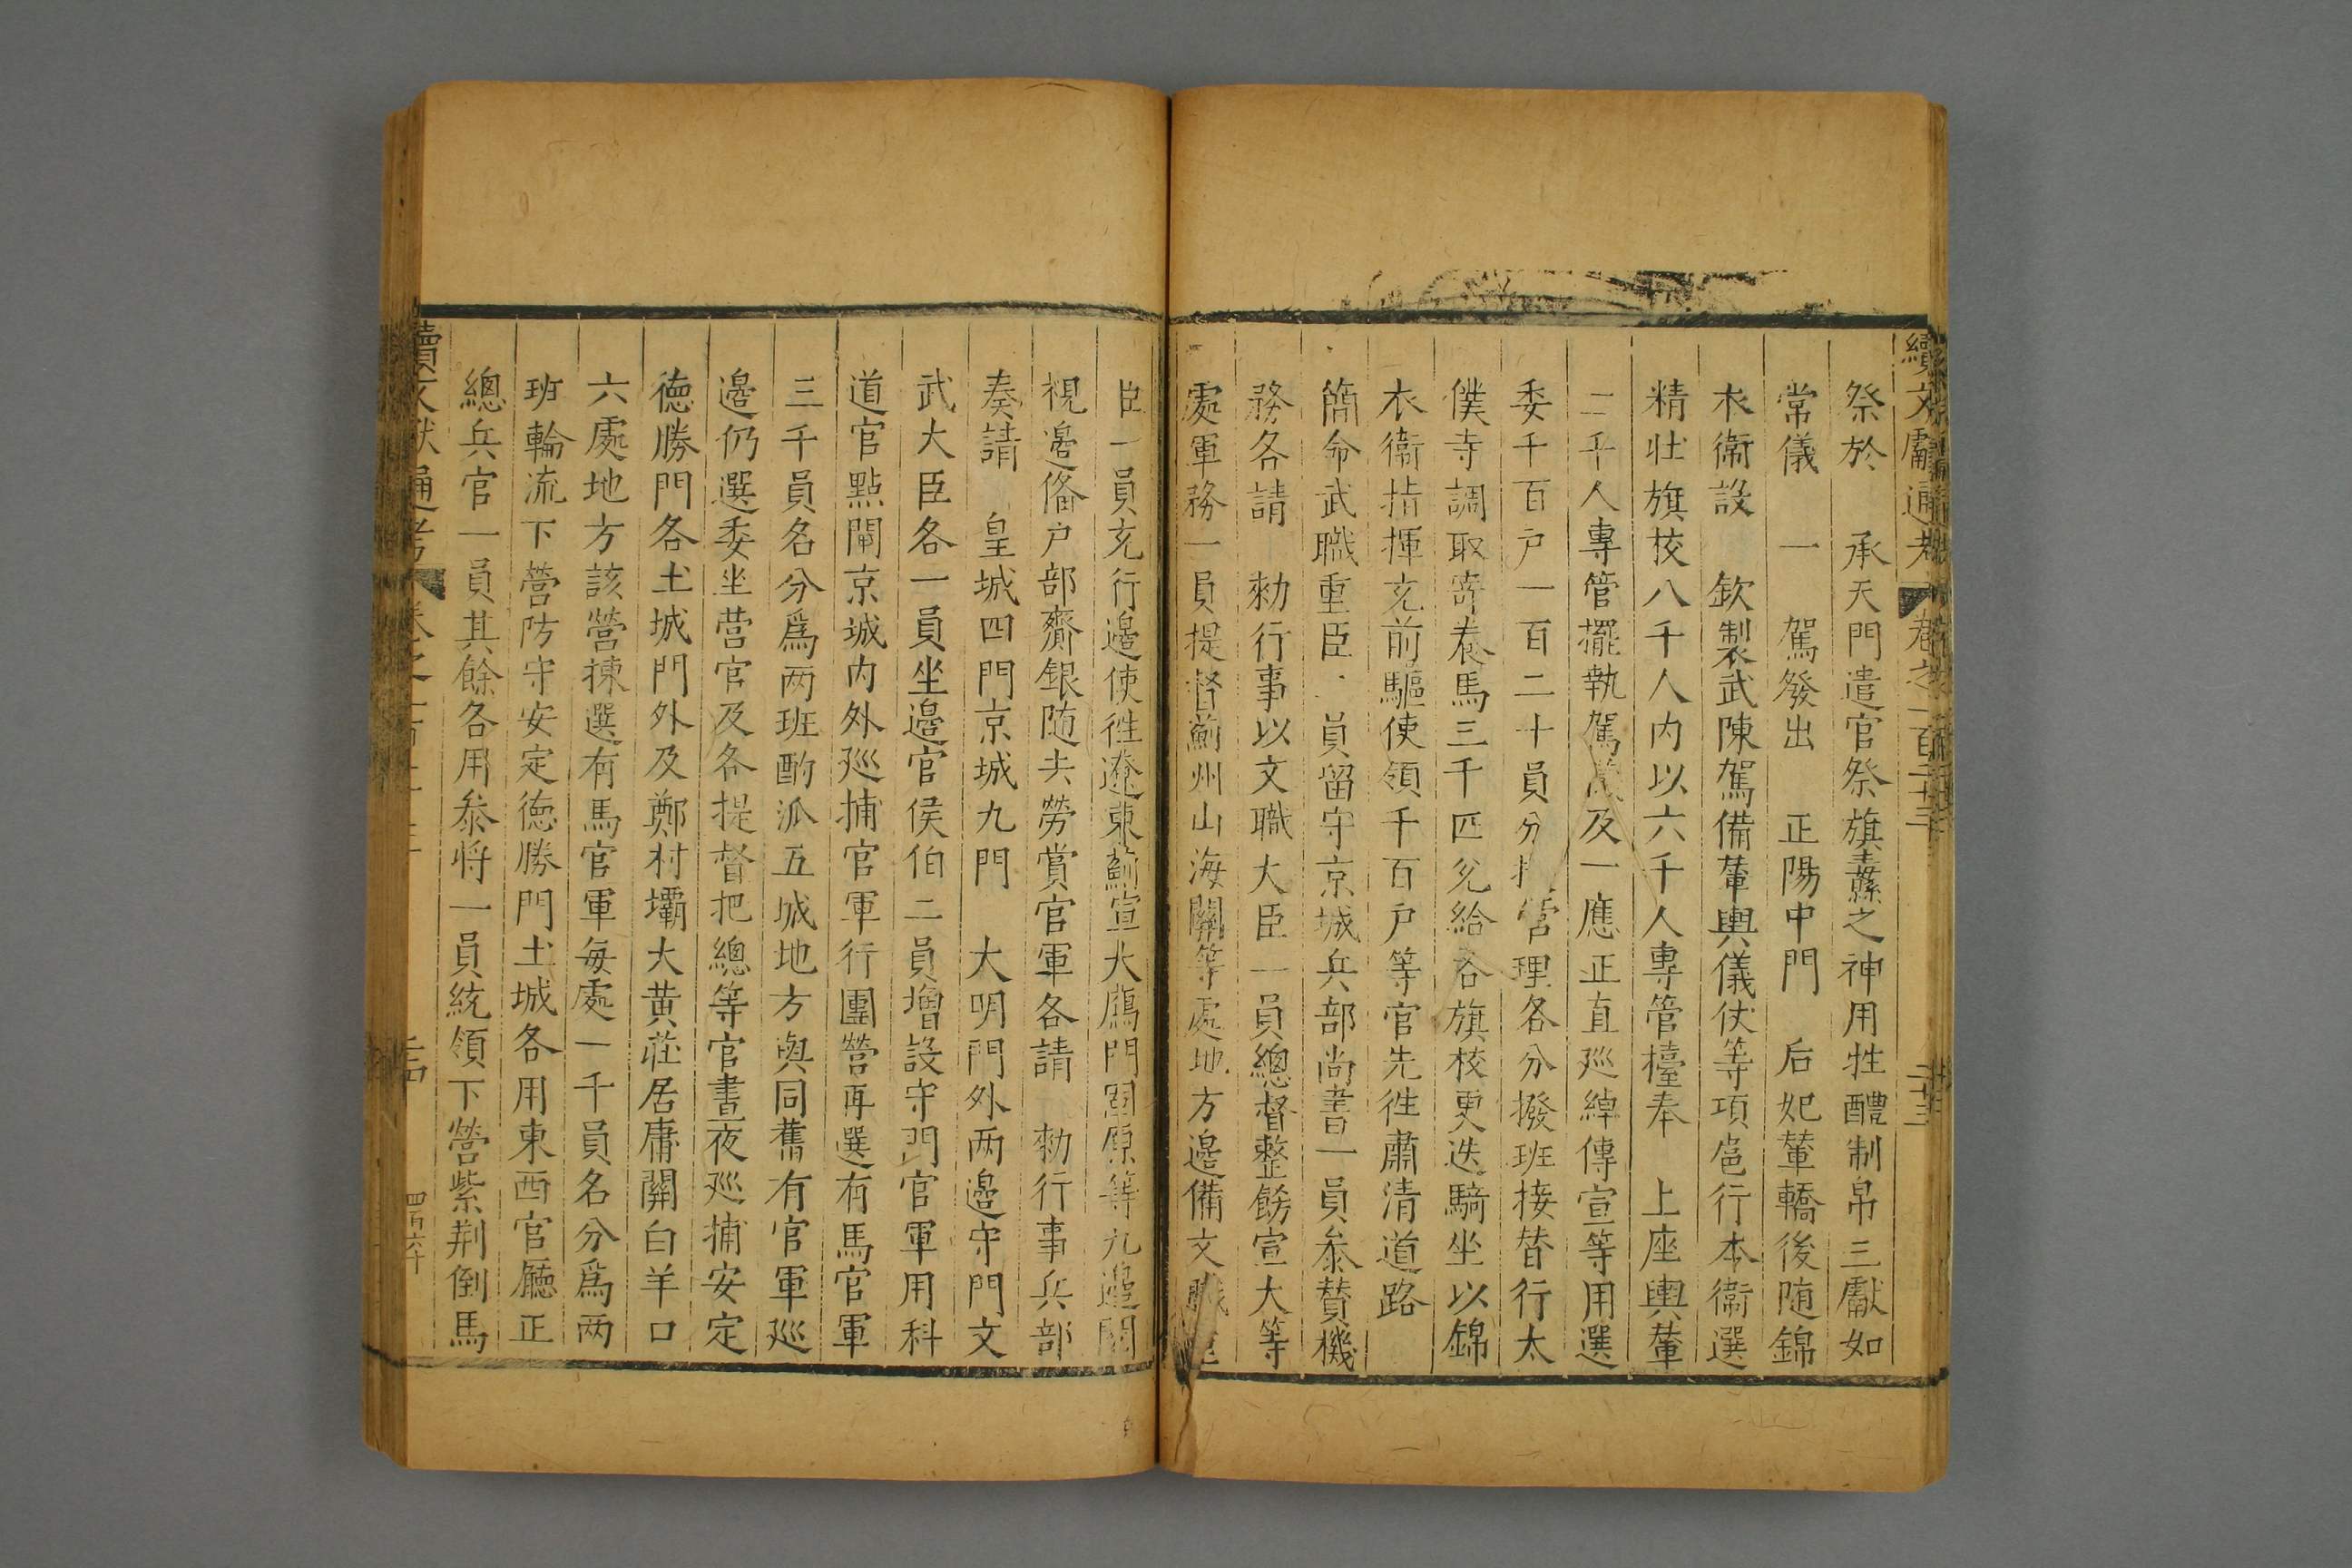 續文獻通考 卷之一百二十三 二十三
祭於 承天門遣官祭旗纛之神用牲醴制帛三獻如
常儀 一 駕發出 正陽中門 后妃輦轎後随錦
衣衞設 欽製武陳駕備輦輿儀仗等項扈行本衞選
精壯旗校八千人内以六千人專管擡奉 上座輿輦
二千人專管擺執駕 及一應正直廵綽傳宣等用選
委千百户一百二十員分 管理各分撥班接替行太
僕寺調取寄養馬三千匹兊給各旗校更迭騎坐以錦
衣衞指揮充前驅使領千百户等官先徃肅清道路
簡命武職重臣 員留守京城兵部尚書一員叅賛機
務各請 勑行事以文職大臣一員總督整飭宣大等
處軍務一員提督薊州山海關等處地方邊備文職
臣一員充行邊使徃遼東薊宣大鴈門 原等九邊關
視邊俻户部齎銀随去勞賞官軍各請 勑行事兵部
奏請 皇城四門京城九門 大明門外两邊守門文
武大臣各一員坐邊官侯伯二員增設守門官軍用科
道官點閘京城内外廵捕官軍行團營再選有馬官軍
三千員名分爲两班酌派五城地方與同舊有官軍廵
邊仍選委坐营官及各提督把總等官晝夜廵捕安定
德勝門各土城門外及鄭村壩大黄莊居庸關白羊口
六處地方該營揀選有馬官軍每處一千員名分爲两
班輪流下營防守安定德勝門土城各用東西官廳正
總兵官一員其餘各用叅将一員統領下營紫荆倒馬
續文獻通考 卷之 四百六十